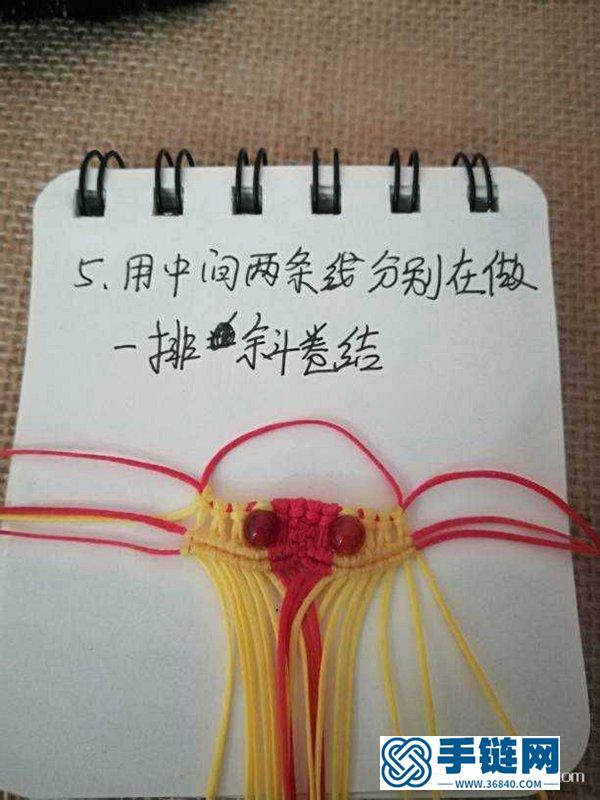 5、用中间两条线分别在做
一排斜卷结
手链网
WWW.36840.COM
om